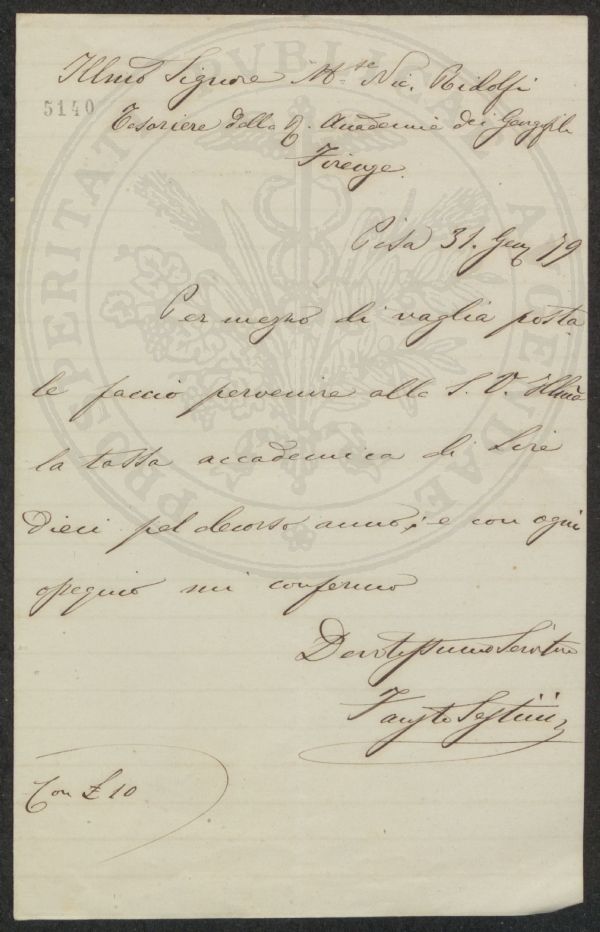 Illmo Signore Mse Nic. Ridolfi
5140
Tesoriere della R. Accademia dei Georgofili
Firenze.
Pisa 31. Gen 79
Per mezzo di vaglia posta
le faccio pervenire alla S. V. Illma
la tassa accademica di Lire
Dieci pel decorso anno; e con ogni
ossequio mi confermo
Devotissimo Servitore
Fausto Sestini
Con £ 10
PROSPERITATI PVBLICAE AVGENDAE